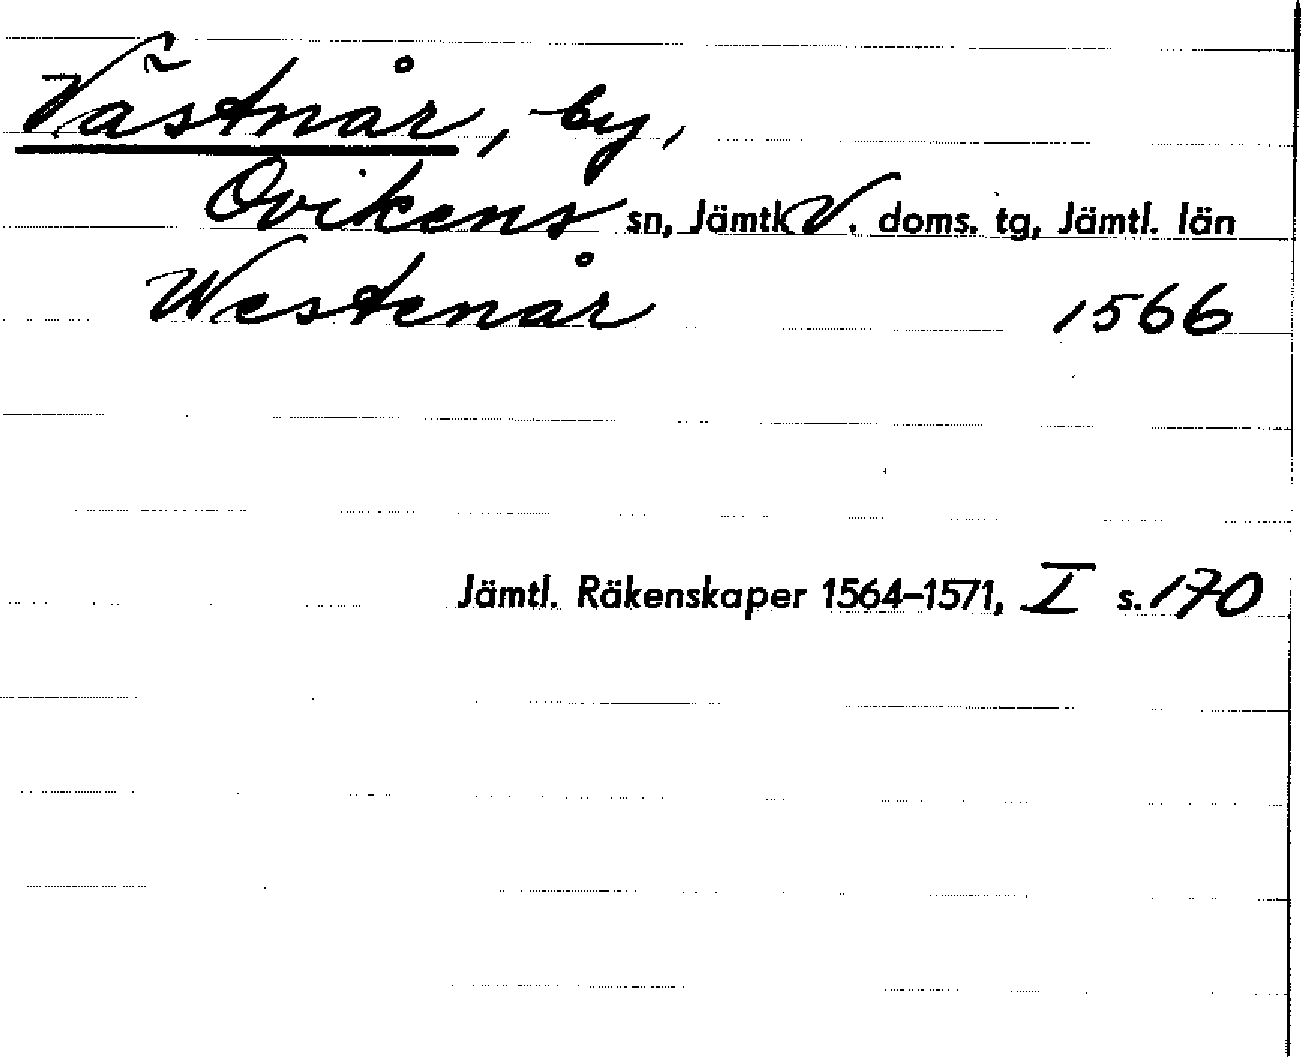 Västnår, by,
Ovikens sn, Jämtl. V. doms. tg, Jämtl. län
Westenår 1566
Jämtl. Räkenskaper 1564–1571, I s. 170